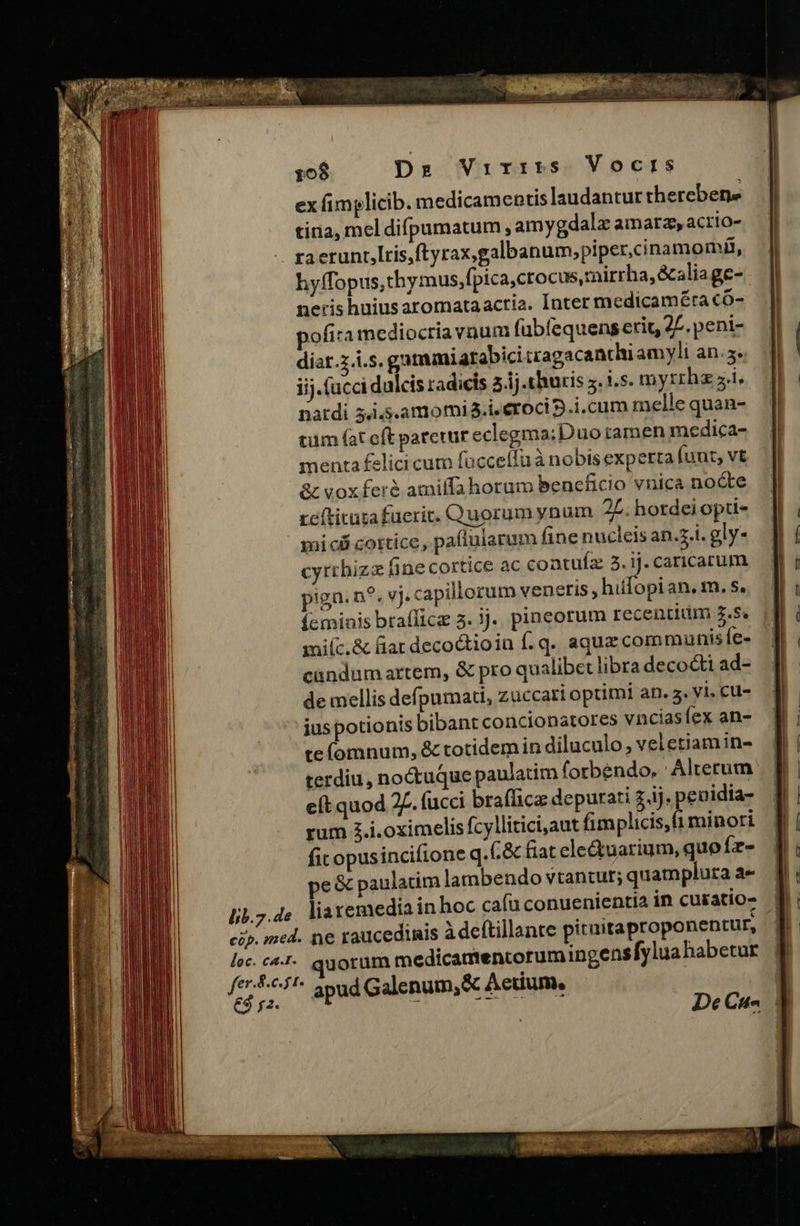 108 DE VITIIS VOCIS
ex ſimplicib. medicamentis laudantur therebene
tina, mel diſpumatum, amygdalæ amaræ, acrio-
ra erunt, Iris, ſtyrax, galbanum, piper, cinamomũ,
hyſſopus, thymus, ſpica, crocus, mirrha, & alia ge-
neris huius aromata acria. Inter medicamẽta cõ-
poſita mediocria vnum ſubſequens erit, ♃. peni-
diar. ʒ.i.s. gummi arabici tragacanthi amyli an. ʒ.
iij. ſucci dulcis radicis ʒ.ij. thuris ʒ.i.s. myrrhæ ʒ.i.
nardi ʒ.i.s. amomi ʒ.i. croci ℈.i. cum melle quan-
tum ſat eſt paretur eclegma: Duo tamen medica-
menta felici cum ſucceſſu à nobis experta ſunt, vt
& vox ferè amiſſa horum beneficio vnica nocte
reſtituta fuerit. Quorum vnum ♃. hordei opti-
mi cũ cortice, paſſularum ſine nucleis an. ℥.i. gly-
cyrrhizæ ſine cortice ac contuſæ ʒ.ij. caricarum
pign. nº. vj. capillorum veneris, hiſſopi an. m. s.
ſeminis braſſicæ ʒ. ij. pineorum recentium ℥.s.
miſc. & fiat decoctio in ſ. q. aquæ communis ſe-
cundum artem, & pro qualibet libra decocti ad-
de mellis deſpumati, zuccari optimi an. ʒ. vi. cu-
ius potionis bibant concionatores vncias ſex an-
te ſomnum, & totidem in diluculo, vel etiam in-
terdiu, noctuáque paulatim ſorbendo. Alterum
eſt quod ♃. ſucci braſſicæ depurati ℥.ij. penidia-
rum ℥.i. oximelis ſcyllitici, aut ſimplicis, ſi minori
ſit opus inciſione q. ſ. & fiat electuarium, quo ſæ-
pe & paulatim lambendo vtantur; quamplura a-
lib. 7. de liaremedia in hoc caſu conuenientia in curatio-
cõp. med. ne raucedinis à deſtillante pituita proponentur,
loc. ca. 1. quorum medicamentorum ingens ſylua habetur
ſer. 8. c. 51. apud Galenum, & Aetium.
& 52. De Cu-